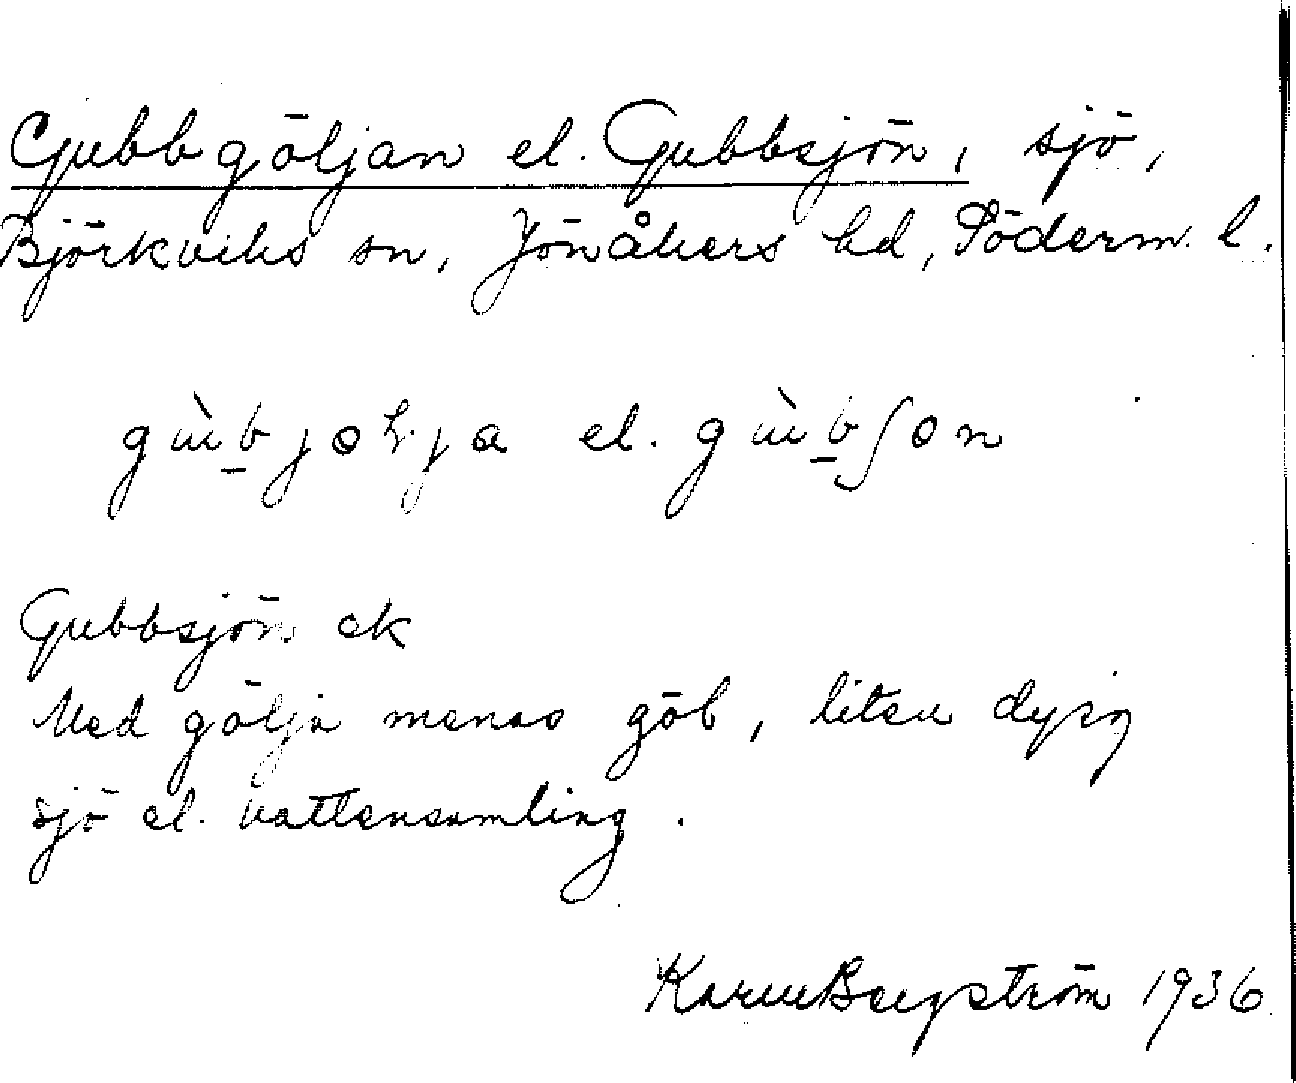 Gubbgöljan el. Gubbsjön, sjö,
Björkviks sn, Jönåkers hd, Söderm. l.
el.
Gubbsjön ek
Med gölja menas göl, liten dyig
sjö el. vattensamling.
Karin Bergström 1936